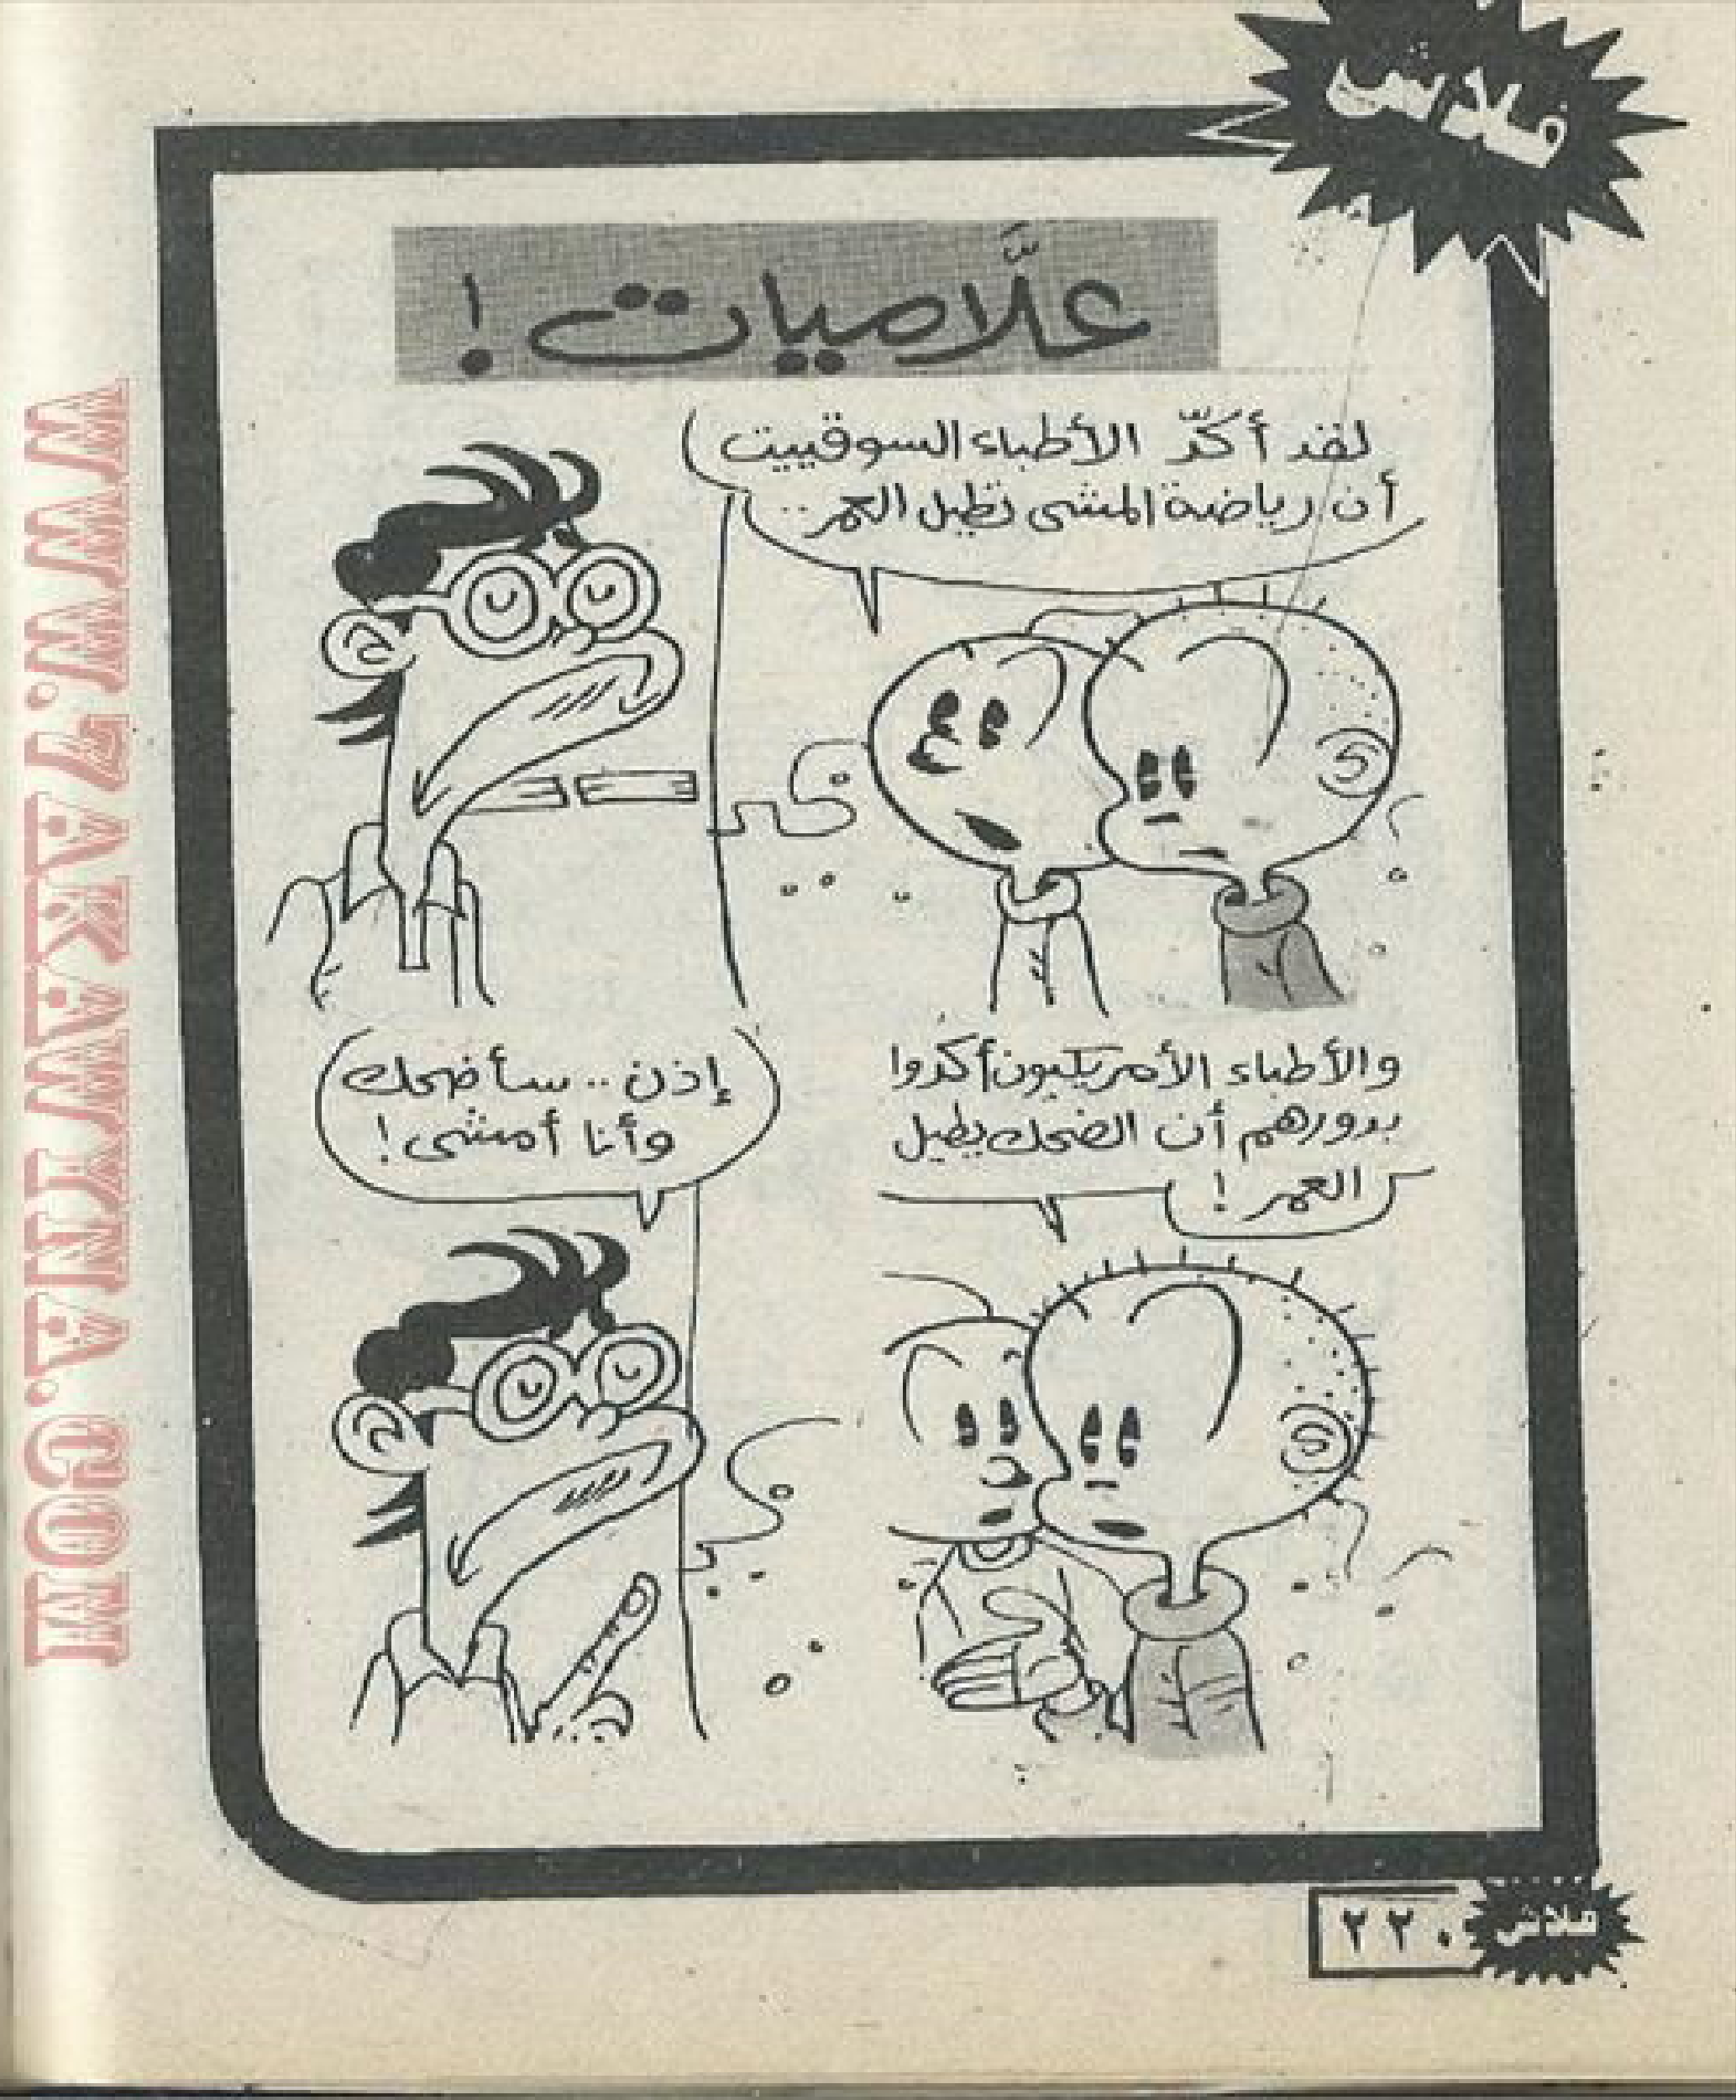 فلاش
علَّاميات !
لقد أكّد الأطباء السوڤييت
أن رياضة المشى تطيل العمر ..
والأطباء الأمريكيون أكدوا
بدورهم أن الضحك يطيل
العمر !
إذن .. سأضحك
وأنا أمشى !
فلاش
٢٢٠
WWW.7AKAWITNA.COM